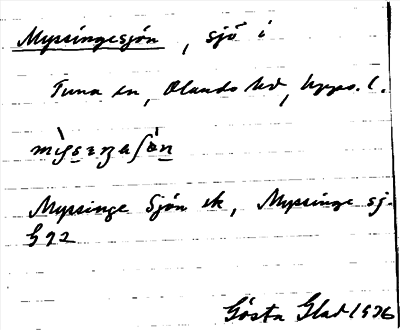 Myssingesjön, sjö i
Tuna sn, Olands hd, Upps. l.
Myssinge Sjön ek, Myssinge sj.
G 92
Gösta Glad 1926